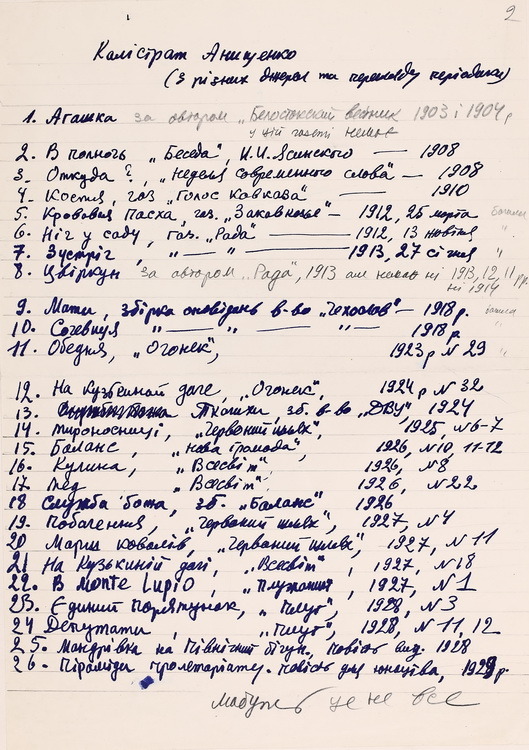 2
Калістрат Анищенко
(З різних джерел та перегляду періодики)
1. Агашка за автором „Белостокский вестник 1903 і 1904,
у цій газеті немає
2. В полночь „Беседа", И.И. Ясинского — 1908
3. Откуда?, „Неделя современного слова" — 1908
4. Костя, газ. „Голос Кавказа" — 1910
5. Кровавая пасха, газ. „Закавказье" — 1912, 25 марта бачили
6. Ніч у саду, газ. „Рада" — 1912, 13 жовтня "
7. Зустріч, „ — " — 1913, 27 січня "
8. Цвіркун за автором „Рада", 1913 але немає ні 1913, 12, 11 рр.
ні 1914
9. Мати, збірка оповідань в-во „Чехословак" — 1918 р.
10. — " — " — 1918 р. "
11. Обедня, „Огонек", 1923 р N 29 "
12. На кузькиной даче, „Огонек", 1924 р N 32
13. Ткачихи, зб. в-во „ДВУ" 1924
14. Мироносиці, „Червоний шлях", 1925, N 6-7
15. Баланс, „Нова громада", 1926, N 10, 11-12
16. Кулина, „Всесвіт", 1926, N 8
17. Лед „Всесвіт", 1926, N 22
18 Служба божа, зб. „Баланс" 1926
19. Побачення, „Червоний шлях", 1927, N 4
20 Марш ковалів, „Червоний шлях", 1927, N 11
21 На Кузькиній дачі, „Всесвіт", 1927, N 18
22. В Monte Lupio, „Плужанин", 1927, N 1
23. Єдиний порятунок, „Плуг", 1928, N 3
24 Депутати, „Плуг", 1928, N 11, 12
25. Мандрівка на Північний бігун. Повість вид. 1928
26. Піраміди пролетаріату. Повість для юнацтва, 1929 р.
Мабуть це не все